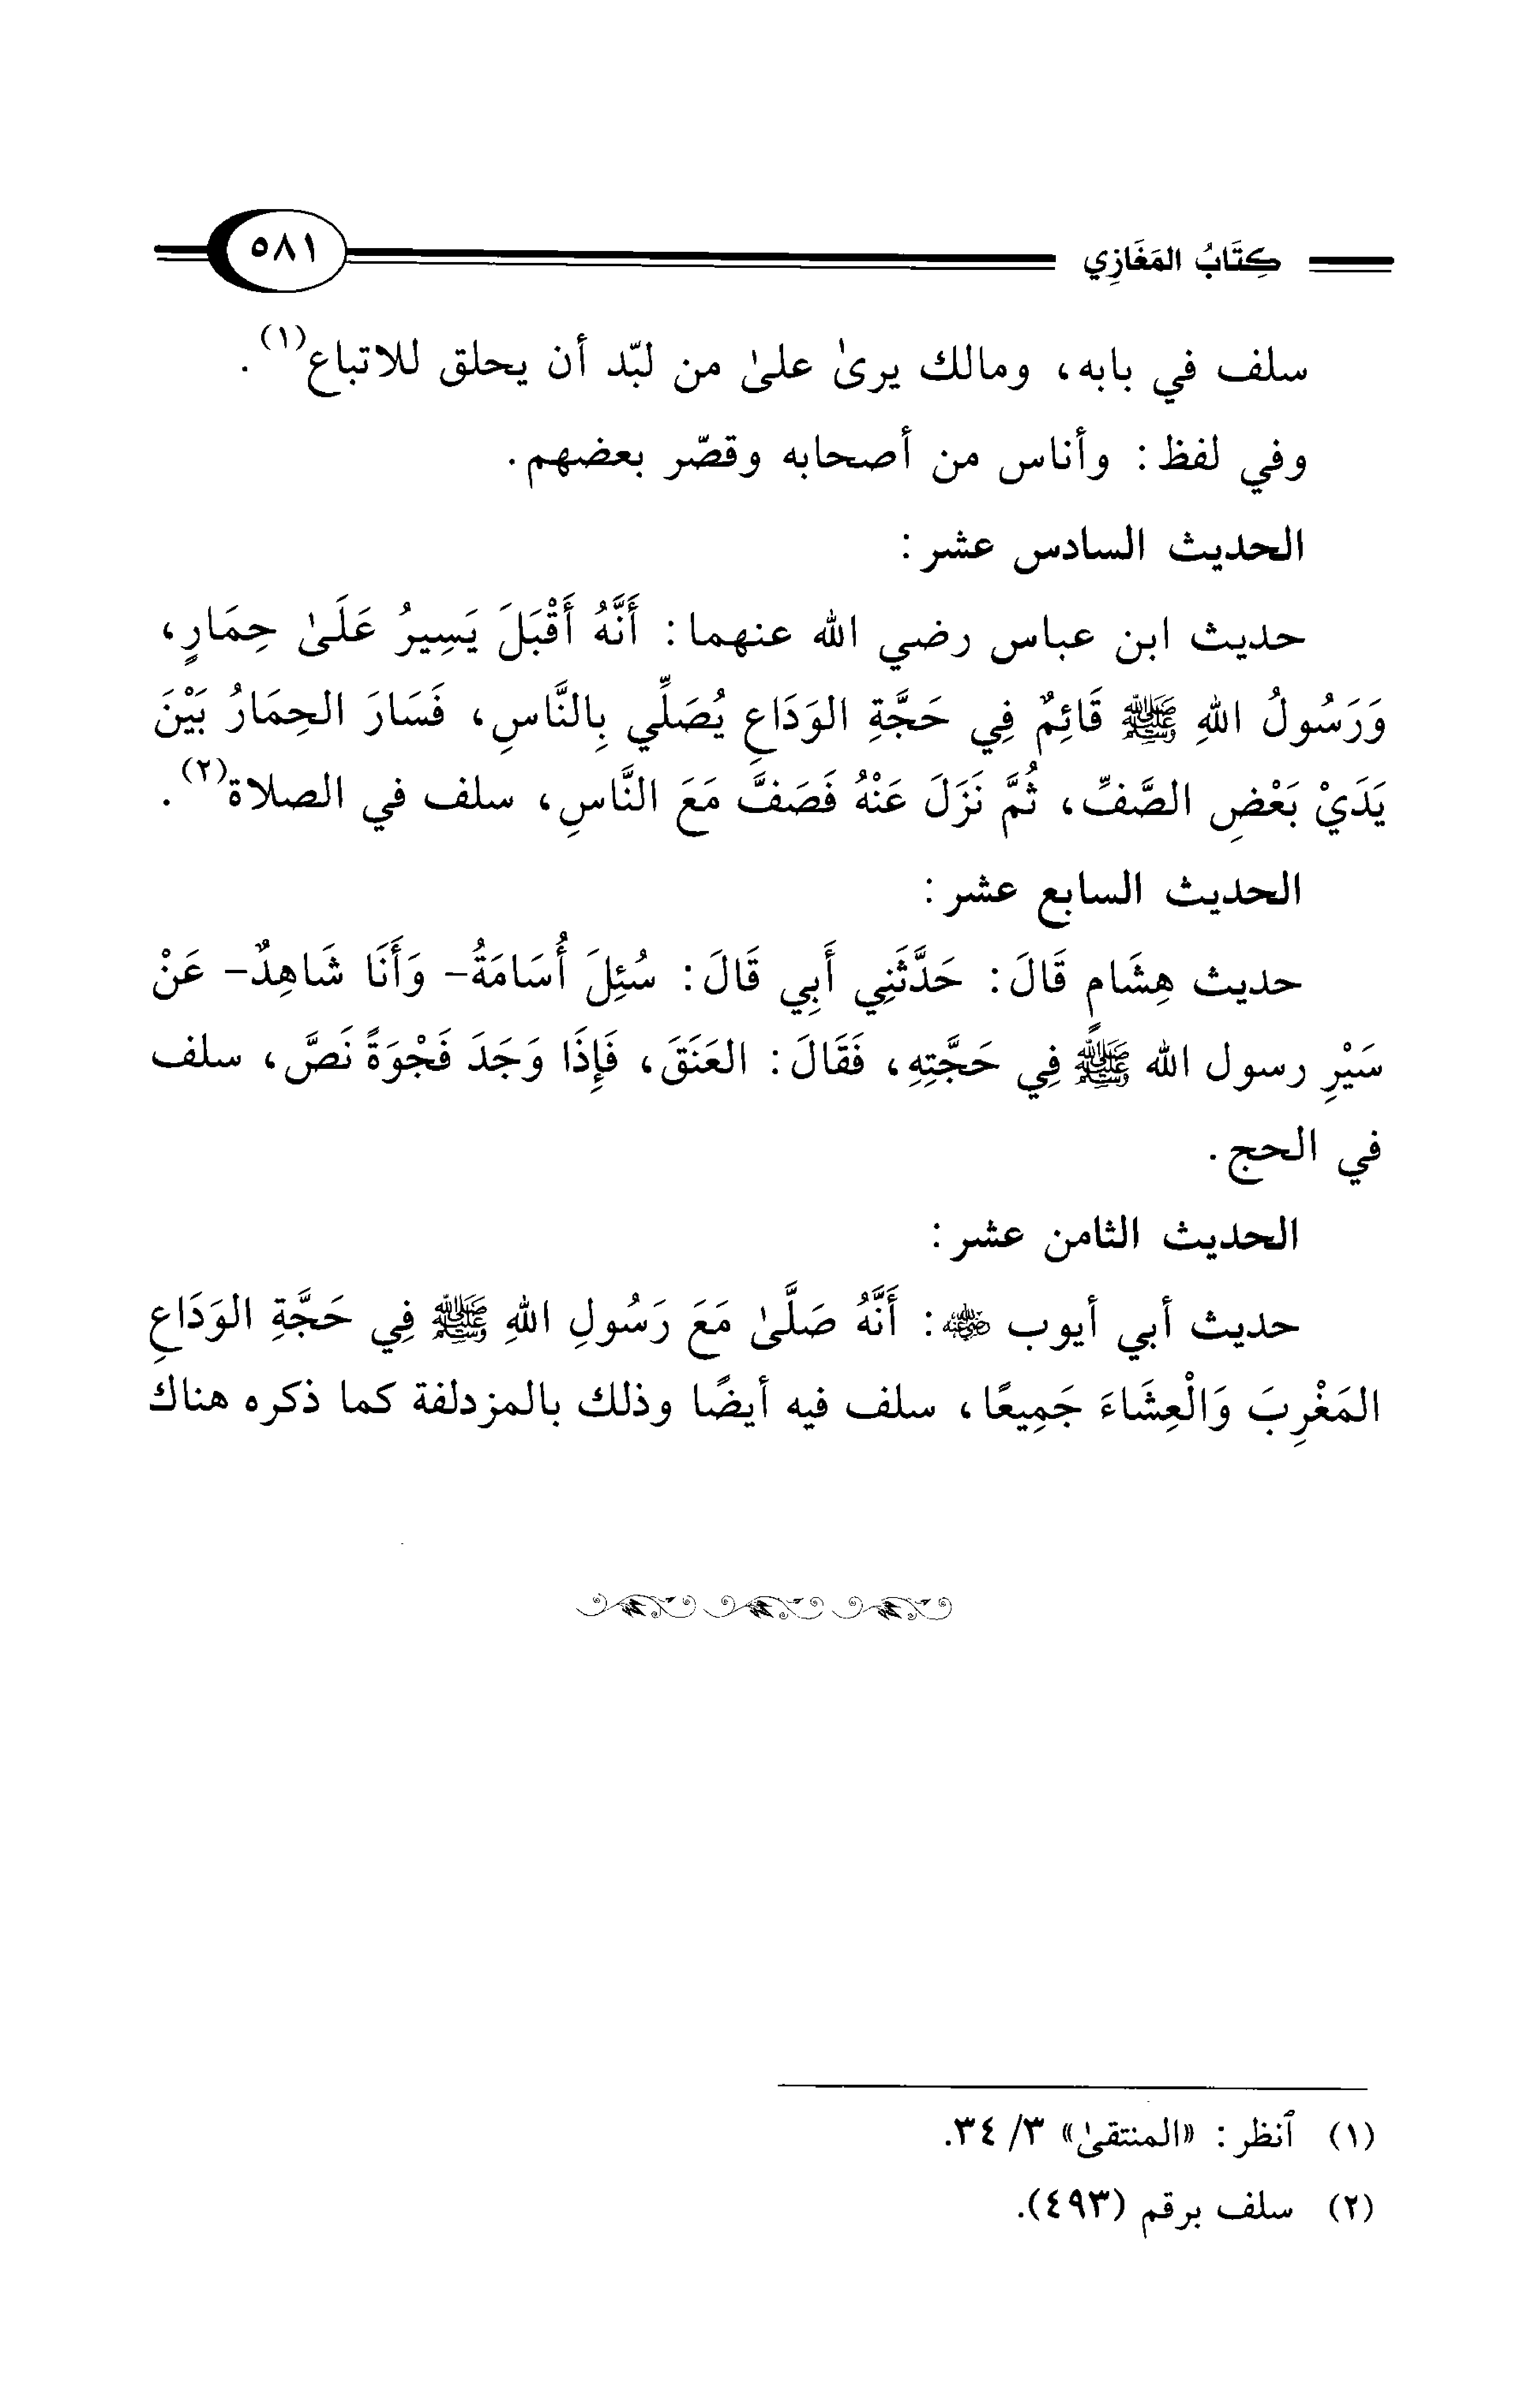 كِتَابُ المَغَازِي ٥٨١
سلف في بابه، ومالك يرىٰ علىٰ من لبّد أن يحلق للاتباع(١).
وفي لفظ: وأناس من أصحابه وقصّر بعضهم.
الحديث السادس عشر:
حديث ابن عباس رضي الله عنهما: أَنَّهُ أَقْبَلَ يَسِيرُ عَلَىٰ حِمَارٍ،
وَرَسُولُ اللهِ ﷺ قَائِمٌ فِي حَجَّةِ الوَدَاعِ يُصَلِّي بِالنَّاسِ، فَسَارَ الحِمَارُ بَيْنَ
يَدَيْ بَعْضِ الصَّفِّ، ثُمَّ نَزَلَ عَنْهُ فَصَفَّ مَعَ النَّاسِ، سلف في الصلاة(٢).
الحديث السابع عشر:
حديث هِشَامٍ قَالَ: حَدَّثَنِي أَبِي قَالَ: سُئِلَ أُسَامَةُ- وَأَنَا شَاهِدٌ- عَنْ
سَيْرِ رسول الله ﷺ فِي حَجَّتِهِ، فَقَالَ: العَنَقَ، فَإِذَا وَجَدَ فَجْوَةً نَصَّ، سلف
في الحج.
الحديث الثامن عشر:
حديث أبي أيوب رضي الله عنه: أَنَّهُ صَلَّىٰ مَعَ رَسُولِ اللهِ ﷺ فِي حَجَّةِ الوَدَاعِ
المَغْرِبَ وَالْعِشَاءَ جَمِيعًا، سلف فيه أيضًا وذلك بالمزدلفة كما ذكره هناك
(١) ٱنظر: «المنتقىٰ» ٣/ ٣٤.
(٢) سلف برقم (٤٩٣).